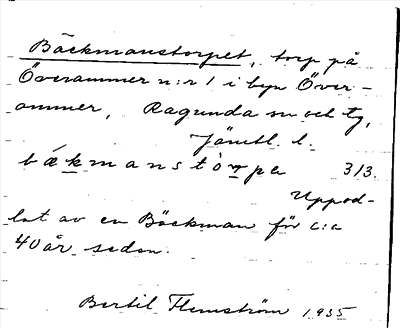 Bäckmanstorpet, torp på
Överammer n:r 1 i byn Över-
ammer, Ragunda sn och tg,
Jämtl. l.
bäkmanstòrpe 3/3.
Uppod-
lat av en Bäckman för c:a
40 år sedan.
Bertil Flemström 1935